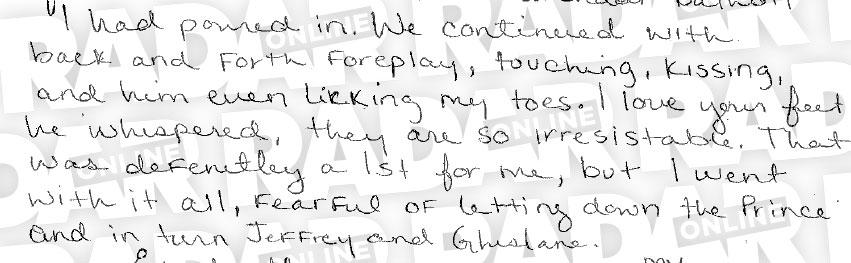 "I had poured in. We continued with
back and forth foreplay, touching, kissing,
and him even likking my toes. I love your feet
he whispered, they are so irresistable. That
was defenitley a 1st for me, but I went
with it all, fearful of letting down the Prince
and in turn Jeffrey and Ghislane.
RADAR ONLINE